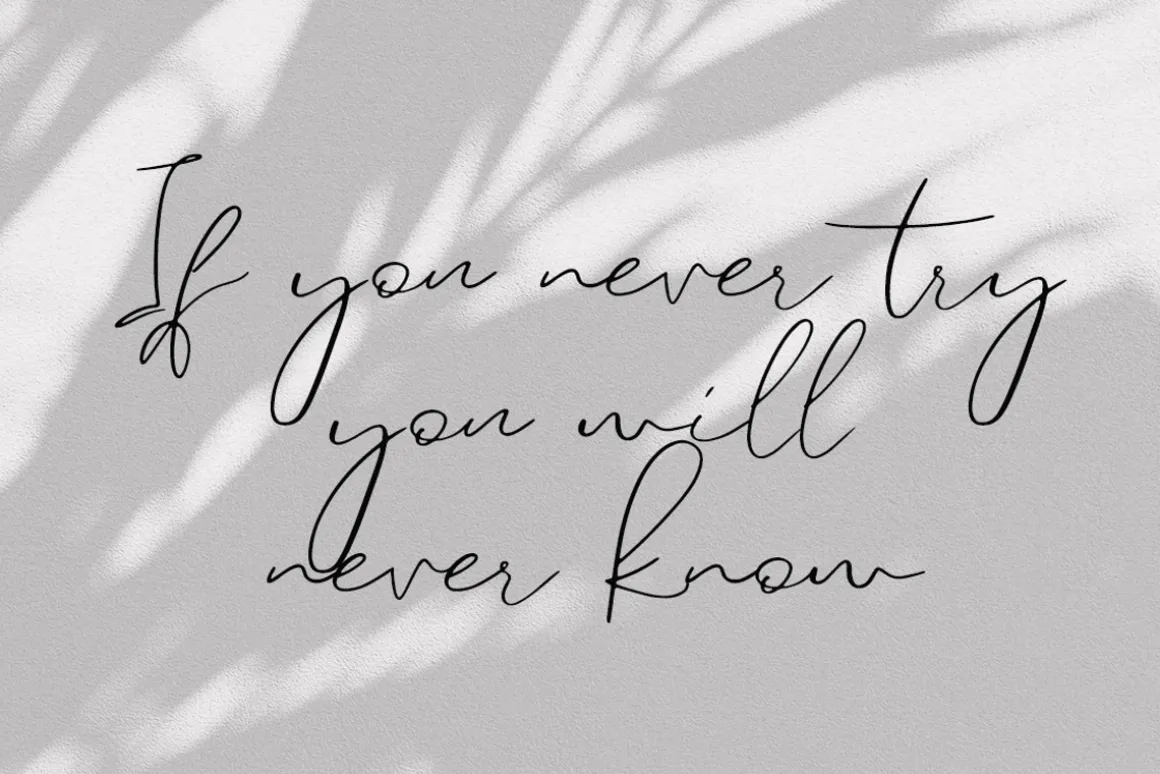 If you never try
you will
never know